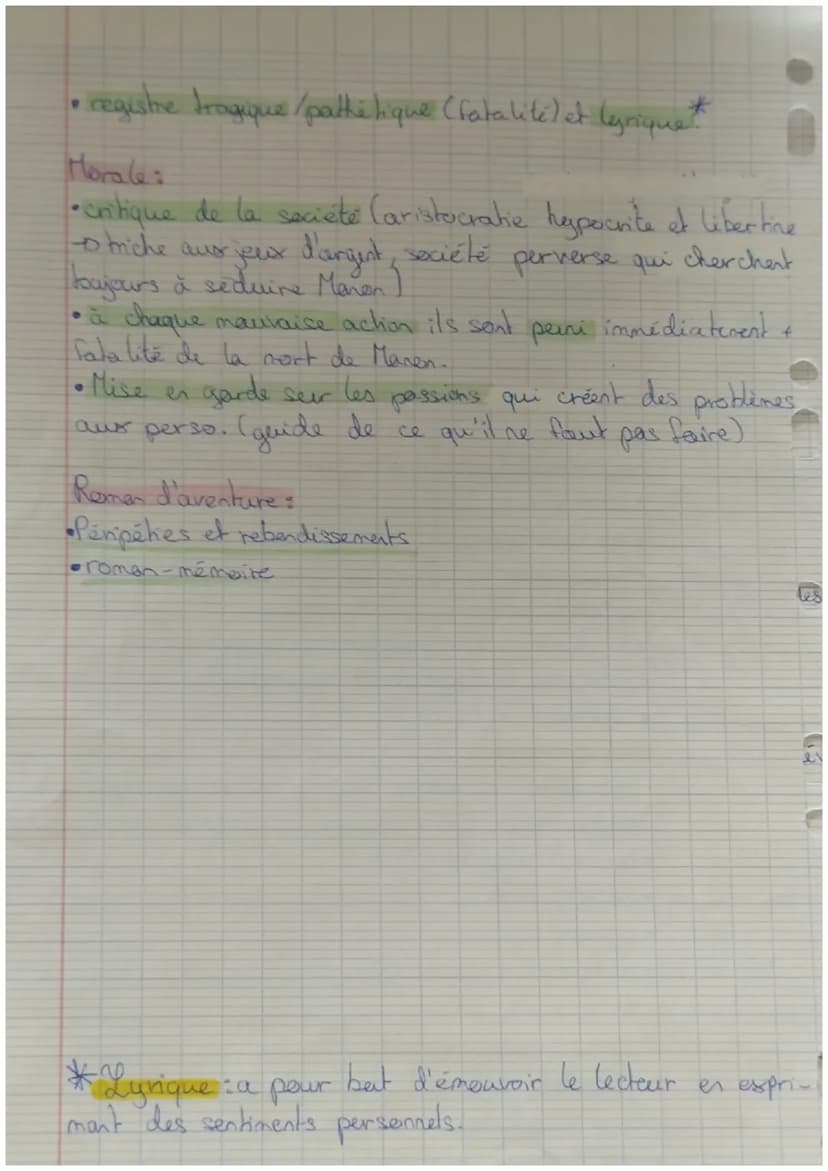 • registre tragique/pathétique (fatalité) et lyrique*.
Morale:
• critique de la société (aristocratie hypocrite et libertine
→ triche aux jeux d'argent, société perverse qui cherchent
toujours à séduire Manon)
• à chaque mauvaise action ils sont puni immédiatement +
fatalité de la mort de Manon.
• Mise en garde sur les passions qui créent des problèmes
aux perso. (guide de ce qu'il ne faut pas faire)
Roman d'aventure:
• Péripéties et rebondissements
• roman-mémoire
les
* Lyrique : a pour but d'émouvoir le lecteur en expri-
mant des sentiments personnels.